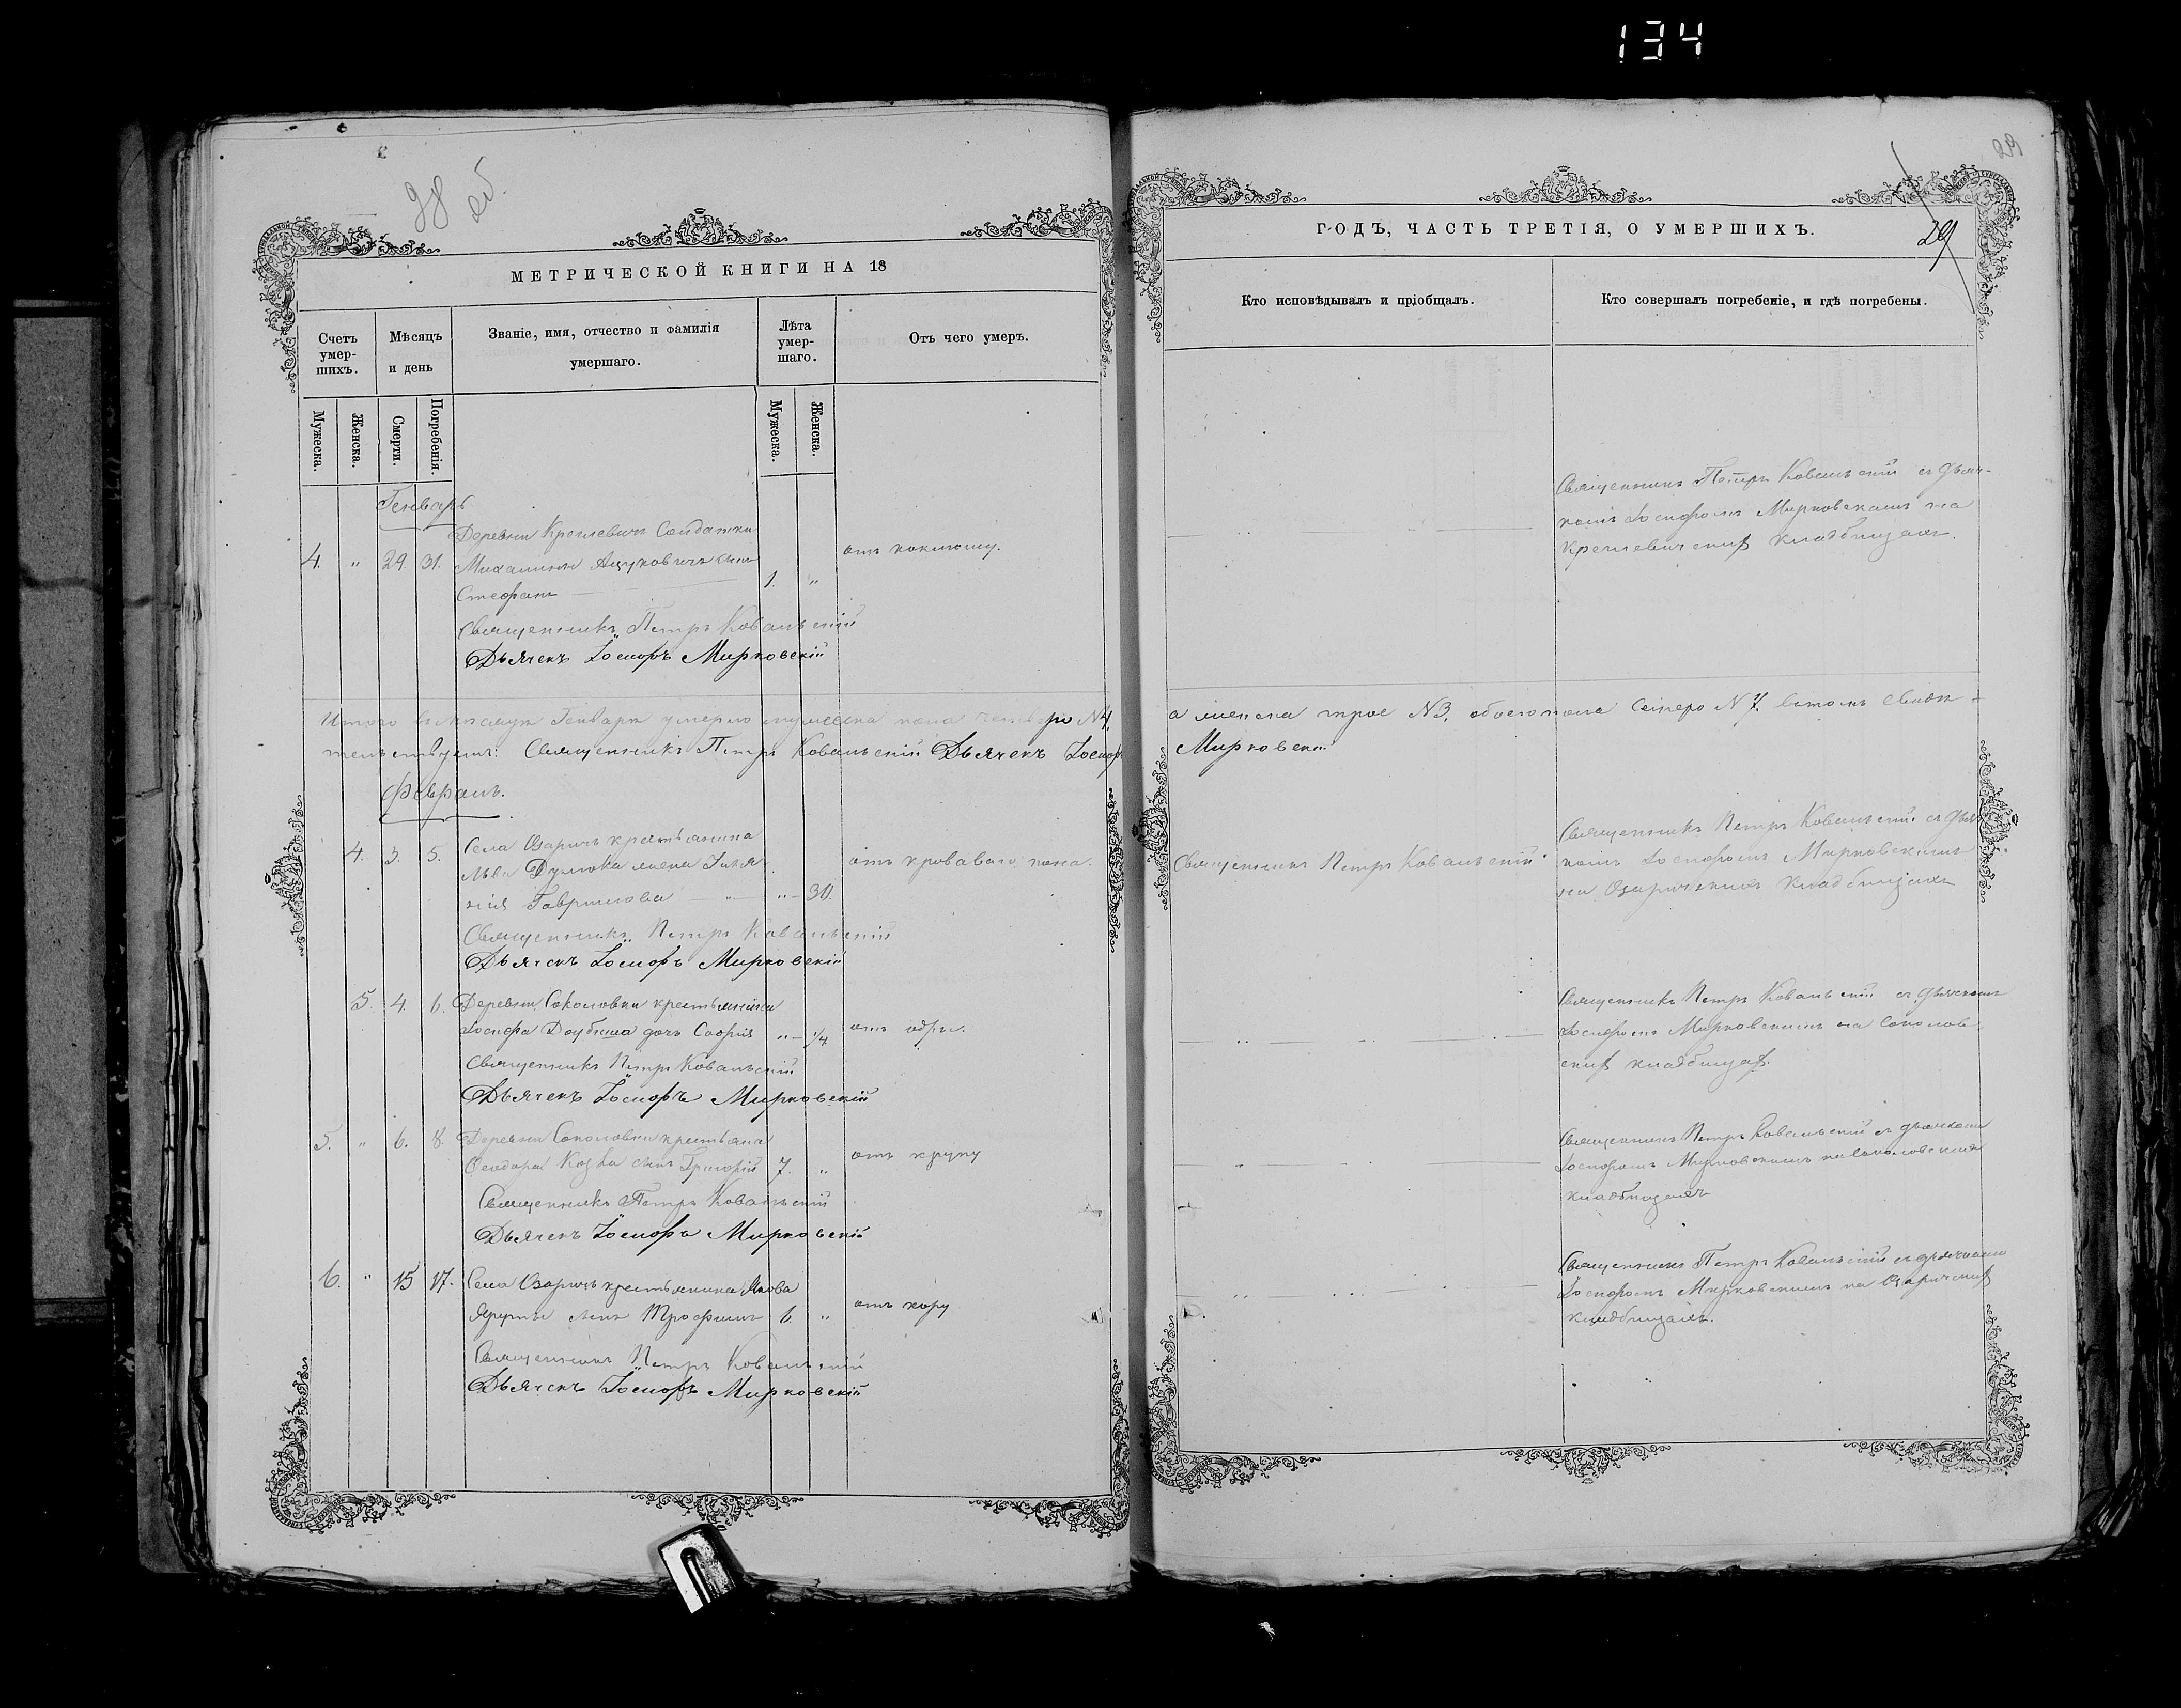 134
28 об.
29
МЕТРИЧЕСКОЙ КНИГИ НА 18
ГОДЪ, ЧАСТЬ ТРЕТІЯ, О УМЕРШИХЪ.
29
Счетъ умер-
шихъ.
Мѣсяцъ
и день
Званіе, имя, отчество и фамилія
умершаго.
Лѣта
умер-
шаго.
Отъ чего умеръ.
Кто исповѣдывалъ и пріобщалъ.
Кто совершалъ погребеніе, и гдѣ погребены.
Мужеска.
Женска.
Смерти.
Погребенія.
Мужеска.
Женска.
Генварь
4. " 29. 31.
Деревни Кремевичъ Солдатки
Михалины сынъ
Стефанъ 1. "
отъ коклюшу.
Священникъ Петръ Ковальскій съ дьяч-
комъ Іосифомъ Мирковскимъ на
кладбищахъ.
Священникъ Петръ Ковальскій
Дьячекъ Іосифъ Мирковскій
Итого въ мѣсяцѣ Генварѣ умерло мужеска пола четверо №4,
а женска трое №3, обоего пола семеро №7, въ томъ свидѣ-
тельствуемъ: Священникъ Петръ Ковальскій Дьячекъ Іосифъ
Мирковскій
Февраль.
4. 3. 5.
Села Озаричъ крестьянина
жена
Гавриилова " 30.
отъ кроваваго
Священникъ Петръ Ковальскій
Священникъ Петръ Ковальскій съ дьяч
комъ Іосифомъ Мирковскимъ
на Озаричскихъ кладбищахъ
Священникъ Петръ Ковальскій
Дьячекъ Іосифъ Мирковскій
5. 4. 6.
Деревни Соколовки крестьянина
Іосифа дочь Софія " 1/4
отъ
Священникъ Петръ Ковальскій съ дьячкомъ
Іосифомъ Мирковскимъ на Соколов-
скихъ кладбищахъ.
Священникъ Петръ Ковальскій
Дьячекъ Іосифъ Мирковскій
5. " 6. 8.
Деревни Соколовки крестьян
Ѳеодора сынъ Григорій 7. "
отъ крупу
Священникъ Петръ Ковальскій съ дьячкомъ
Іосифомъ Мирковскимъ на Соколовскихъ
кладбищахъ
Священникъ Петръ Ковальскій
Дьячекъ Іосифъ Мирковскій
6. " 15 17.
Села Озаричъ крестьянина Якова
сынъ Трофимъ 6 "
отъ кору
Священникъ Петръ Ковальскій съ дьячкомъ
Іосифомъ Мирковскимъ на Озаричскихъ
кладбищахъ.
Священникъ Петръ Ковальскій
Дьячекъ Іосифъ Мирковскій